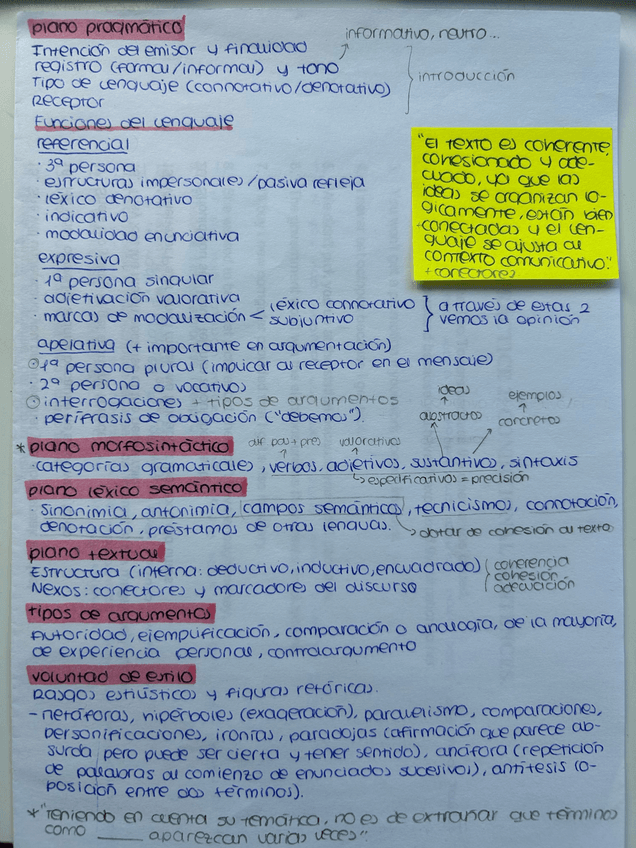 plano pragmático
informativo, neutro...
Intención del emisor y finalidad
registro (formal/informal) y tono
Tipo de lenguaje (connotativo/denotativo)
Receptor
introducción
Funciones del lenguaje
referencial
· 3ª persona
· estructuras impersonales/pasiva refleja
· léxico denotativo
· indicativo
· modalidad enunciativa
"El texto es coherente,
cohesionado y ade-
cuado, ya que las
ideas se organizan ló-
gicamente, están bien
conectadas y el len-
guaje se ajusta al
contexto comunicativo."
+conectores
expresiva
· 1ª persona singular
· adjetivación valorativa
· marcas de modalización < léxico connotativo
subjuntivo
a través de estas 2
vemos la opinión
apelativa (+ importante en argumentación)
· 1ª persona plural (implicar al receptor en el mensaje)
· 2ª persona o vocativos
· interrogaciones + tipos de argumentos
· perífrasis de obligación ("debemos").
ideas
abstractos
ejemplos
concretos
* plano morfosintáctico
dif. pas+pres
valorativos
· categorías gramaticales, verbos, adjetivos, sustantivos, sintaxis
↳ especificativos = precisión
plano léxico semántico
· Sinonimia, antonimia, campos semánticos, tecnicismos, connotación,
denotación, préstamos de otras lenguas.
→ dotar de cohesión al texto
plano textual
Estructura (interna: deductivo, inductivo, encuadrado)
Nexos: conectores y marcadores del discurso
coherencia
cohesión
adecuación
tipos de argumentos
Autoridad, ejemplificación, comparación o analogía, de la mayoría,
de experiencia personal, contraargumento
voluntad de estilo
Rasgos estilísticos y figuras retóricas.
- metáforas, hipérboles (exageración), paralelismo, comparaciones,
personificaciones, ironías, paradojas (afirmación que parece ab-
surda pero puede ser cierta y tener sentido), anáfora (repetición
de palabras al comienzo de enunciados sucesivos), antítesis (o-
posición entre dos términos).
* "Teniendo en cuenta su temática, no es de extrañar que términos
como ____ aparezcan varias veces".